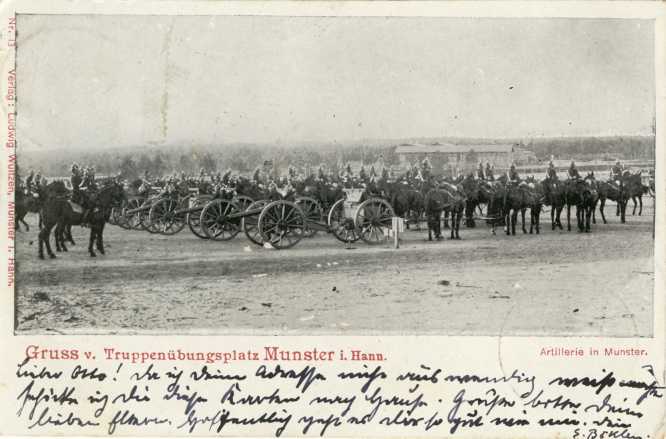 Nr. 13 Verlag: Ludwig Wultzen, Munster i. Hann.
Gruss v. Truppenübungsplatz Munster i. Hann.
Artillerie in Munster.
Lieber Otto! Da ich deine Adresse nicht auswendig weiß
schicke ich dir diese Karten nach Hause. Grüße bitte deine
lieben Eltern. Hoffentlich geht es dir so gut wie mir. Dein